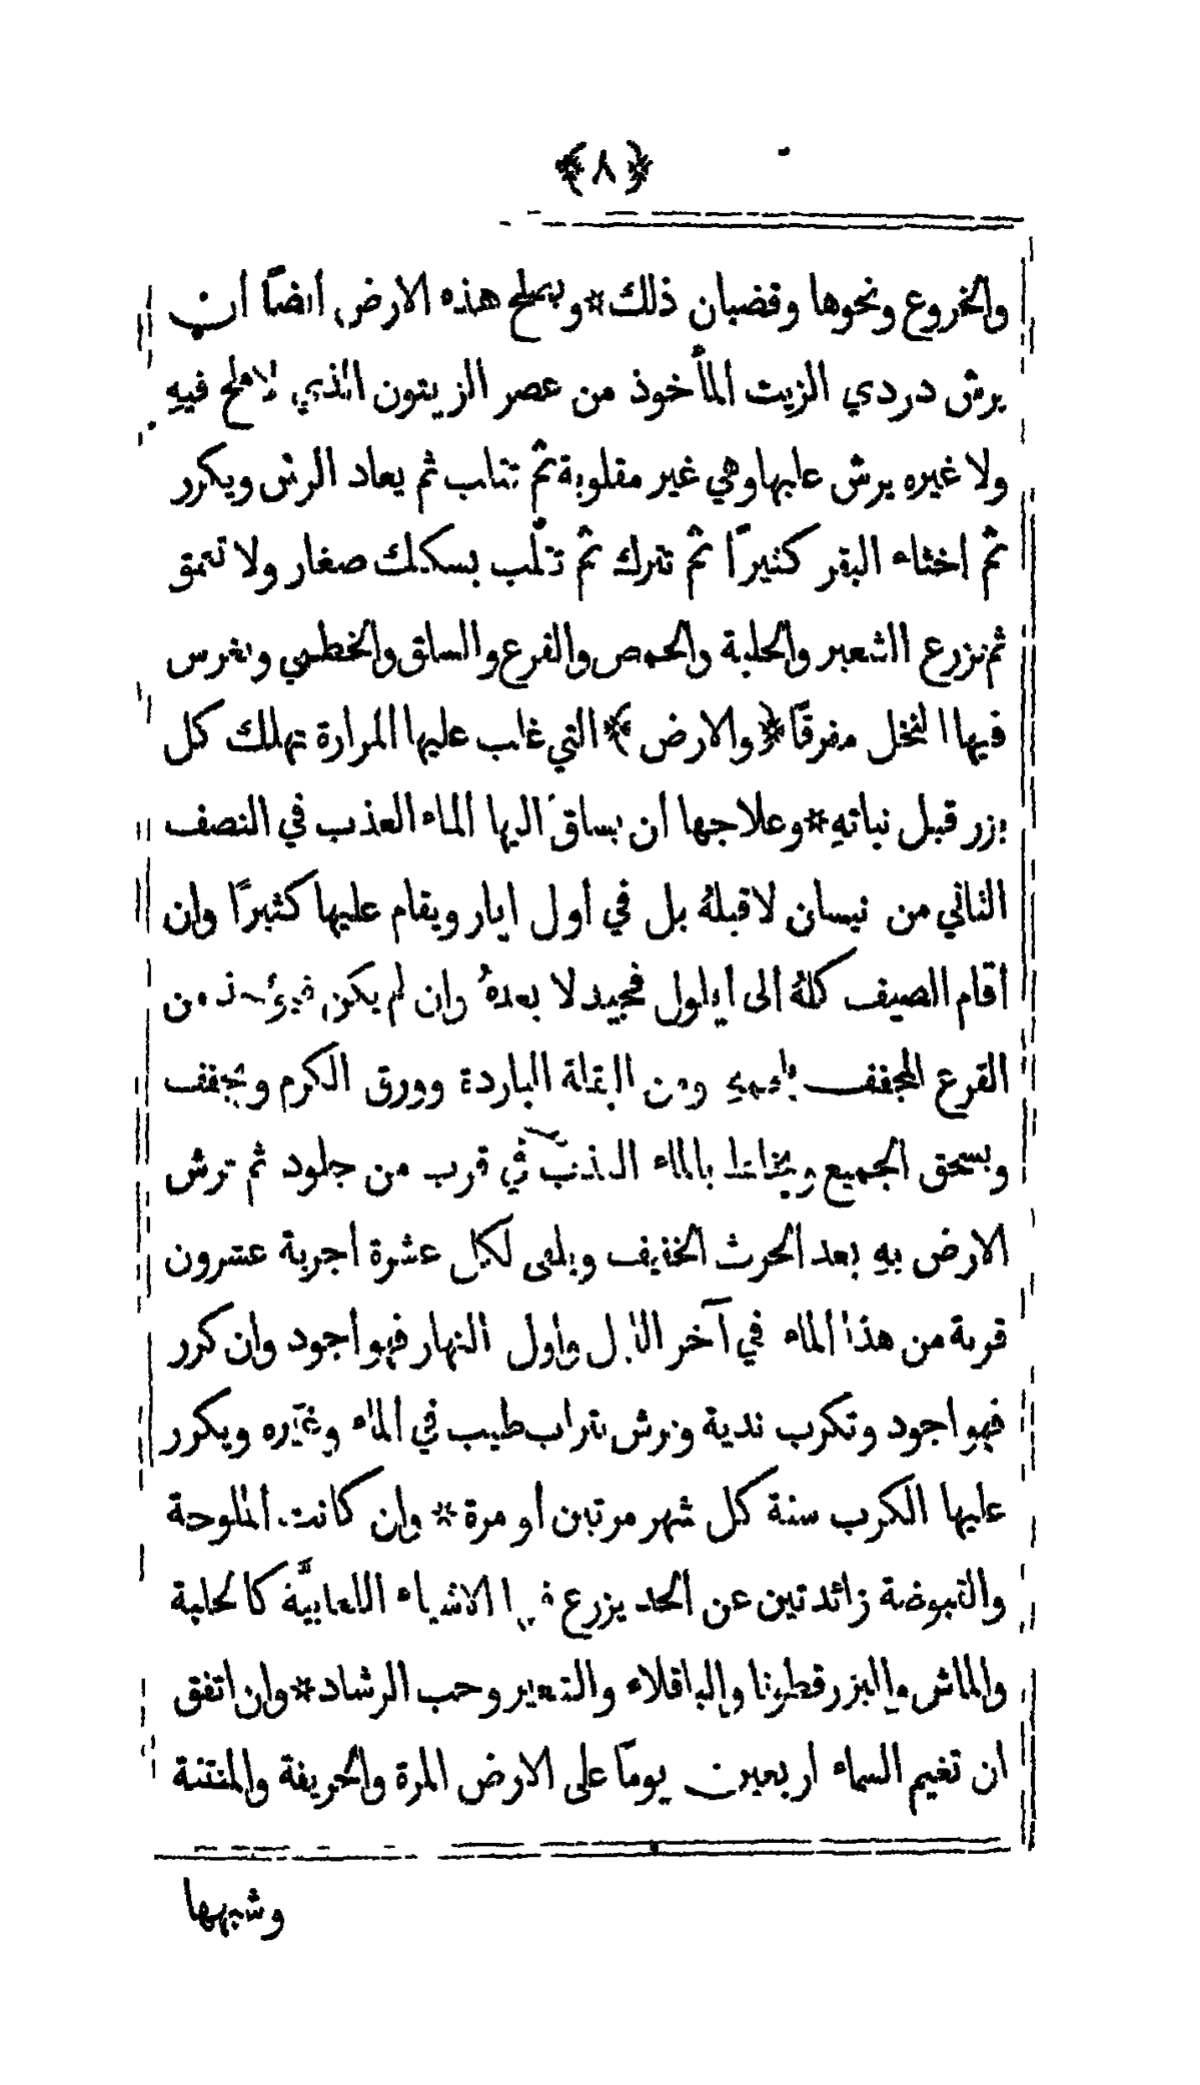 ﴿٨﴾
والخروع ونحوها وقضبان ذلك * ويصلح هذه الارض أيضًا أن
يرش دردي الزيت المأخوذ من عصر الزيتون الذي لا ملح فيهِ
ولا غيره يرش عليها وهي غير مقلوبة ثم تقلب ثم يعاد الرش ويكرر
ثم اخثاء البقر كثيرًا ثم تترك ثم تقلب بسكك صغار ولا تعمق
ثم تزرع الشعير والحلبة والحمص والقرع والسلق والخطمي ويغرس
فيها النخل مفرقًا ﴿والارض﴾ التي غلب عليها المرارة تهلك كل
بزر قبل نباتهِ * وعلاجها أن يساق اليها الماء العذب في النصف
الثاني من نيسان لا قبلهُ بل في أول ايار ويقام عليها كثيرًا وان
أقام الصيف كلهُ الى أيلول فجيد لا بعدهُ وان لم يكن فيؤخذ من
القرع المجفف ومن البقلة الباردة وورق الكرم ويجفف
ويسحق الجميع ويخلط بالماء العذب في قرب من جلود ثم ترش
الارض بهِ بعد الحرث الخفيف ويلقى لكل عشرة أجربة عشرون
قربة من هذا الماء في آخر الليل وأول النهار فهو أجود وان كرر
فهو اجود وتكرب ندية وترش بتراب طيب في الماء وغيره ويكرر
عليها الكرب سنة كل شهر مرتين أو مرة * وإن كانت الملوحة
والقبوضة زائدتين عن الحد يزرع فيها الاشياء اللعابيَّة كالحلبة
والماش والبزر قطونا والباقلاء والشعير وحب الرشاد * وان اتفق
ان تغيم السماء اربعين يومًا على الارض المرة والحريفة والمنتنة
وشبهها